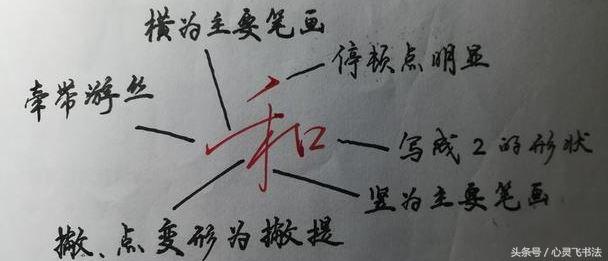 横为主要笔画
停顿点明显
牵带游丝
和
写成2的形状
竖为主要笔画
撇、点变形为撇提
头条号/心灵飞书法